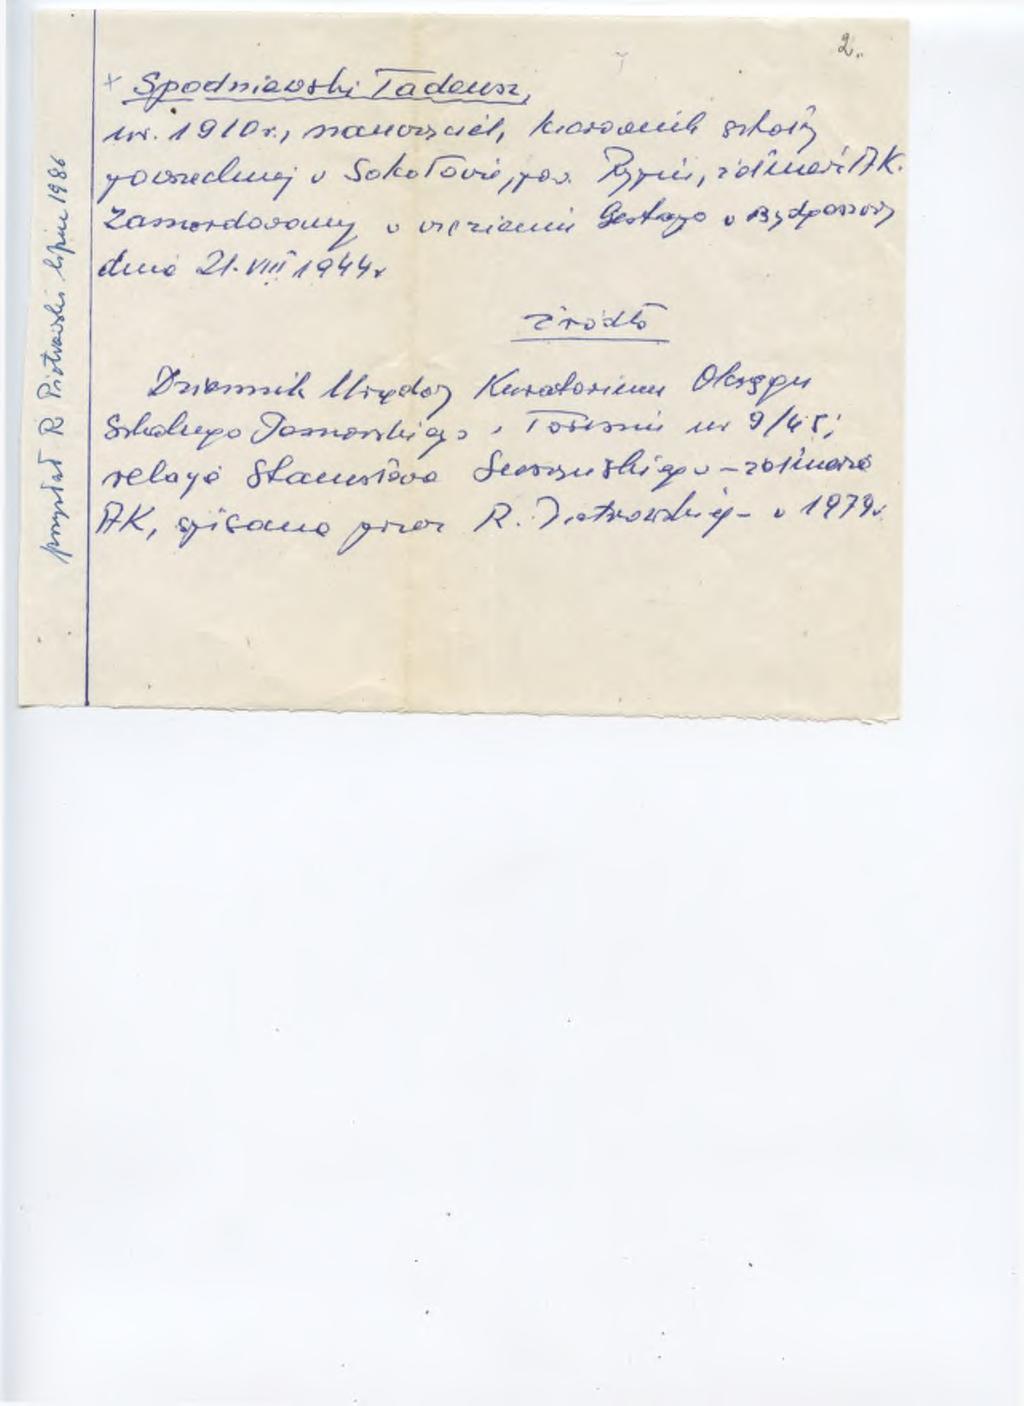 2.
+ Spodniewski Tadeusz,
ur. 1910 r., nauczyciel, kierownik szkoły
powszechnej w Sokołowie, pow. Rypin, żołnierz AK.
Zamordowany w więzieniu Gestapo w Bydgoszczy
dnia 21. VIII 1944 r
źródło
Dziennik Urzędowy Kuratorium Okręgu
Szkolnego Pomorskiego w Toruniu nr 9/45;
relacja Stanisława - żołnierza
AK, spisana przez R. Piotrowskiego - w 1979 r.
przysłał R Piotrowski lipiec 1986